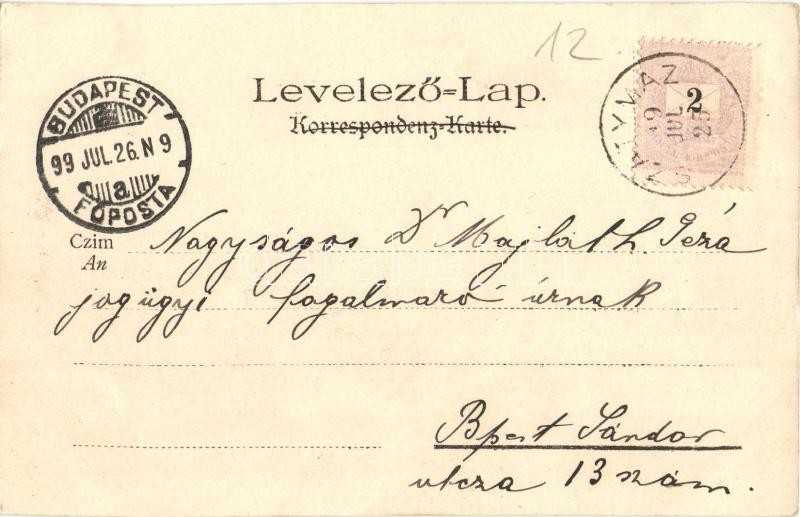 12
Levelező=Lap.
Korrespondenz-Karte.
BUDAPEST
99 JUL. 26. N 9
a
FŐPOSTA
ZATYMAZ
JUL
25
2
Czim Nagyságos Dr Majláth Géza
An
jogügyi fogalmazó úrnak
Bpest Sándor
utcza 13 szám.